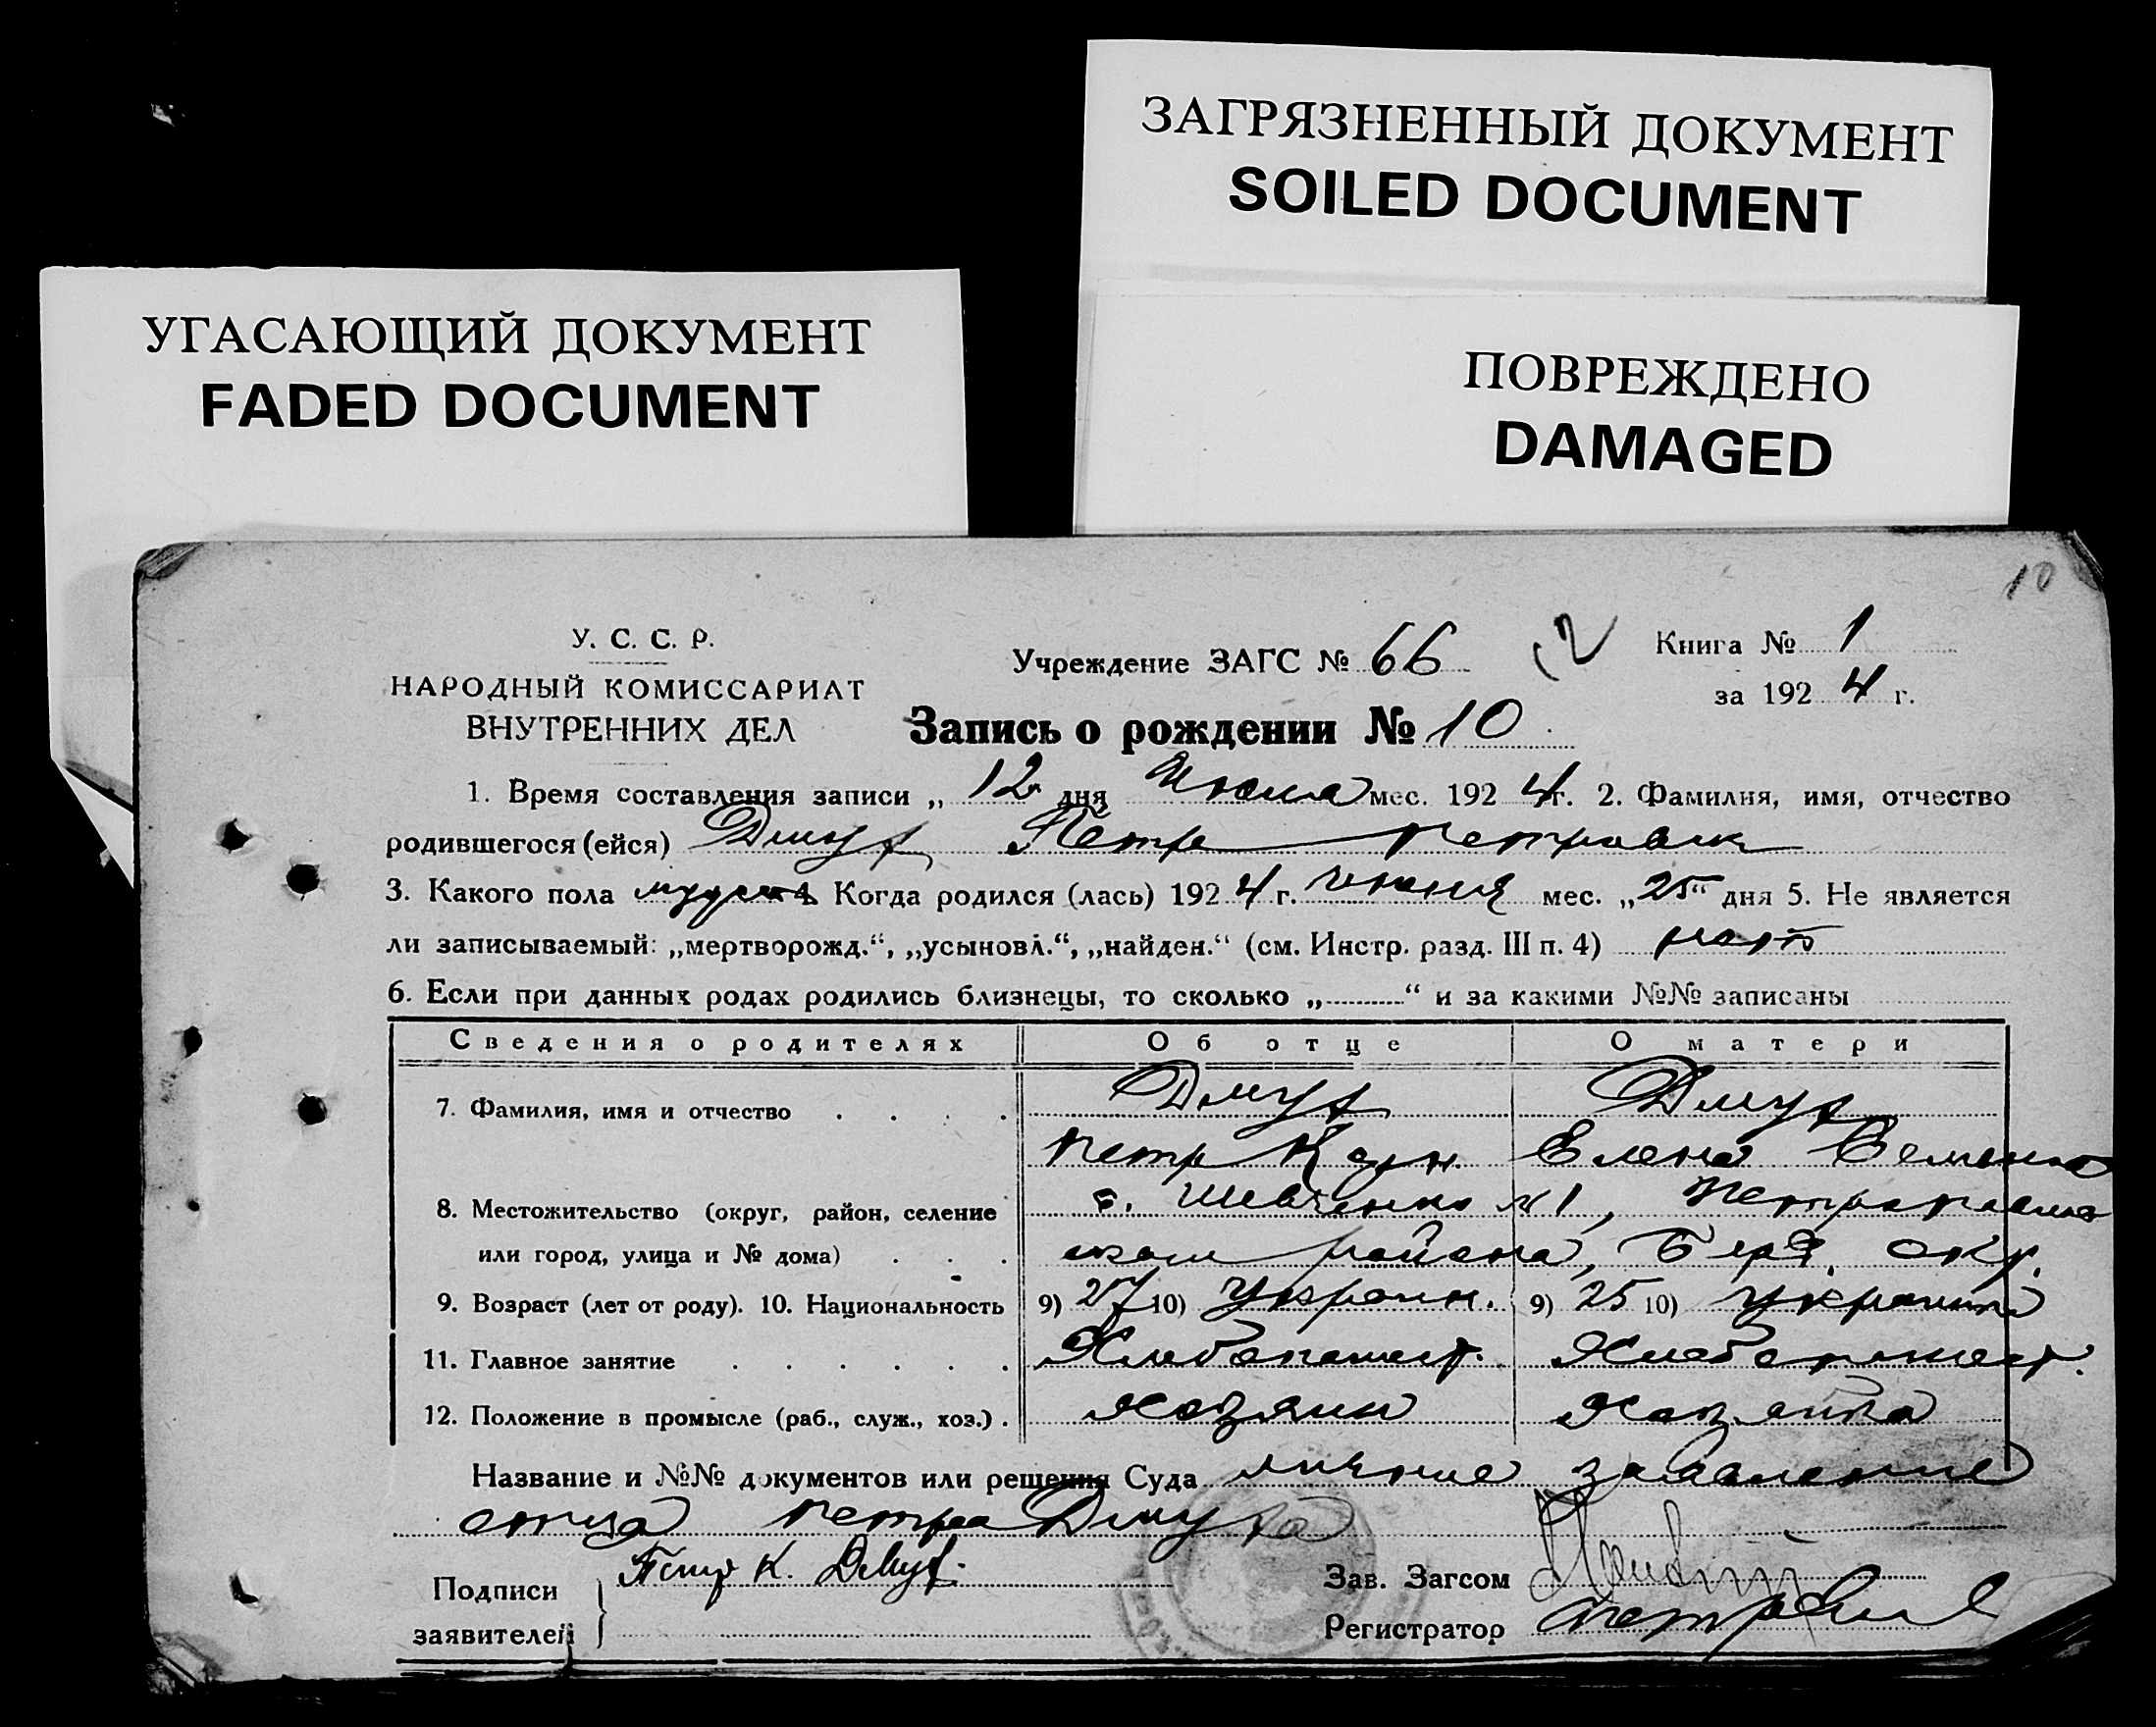 ЗАГРЯЗНЕННЫЙ ДОКУМЕНТ
SOILED DOCUMENT
УГАСАЮЩИЙ ДОКУМЕНТ
FADED DOCUMENT
ПОВРЕЖДЕНО
DAMAGED
10
У. С. С. Р.
НАРОДНЫЙ КОМИССАРИАТ
ВНУТРЕННИХ ДЕЛ
Учреждение ЗАГС № 66
12
Книга № 1
за 1924 г.
Запись о рождении № 10
1. Время составления записи „ 12 дня Июля мес. 1924 г. 2. Фамилия, имя, отчество
родившегося (ейся) Дмуф Петр Петрович
3. Какого пола 4. Когда родился (лась) 1924 г. июня мес. „25“ дня 5. Не является
ли записываемый: „мертворожд.“, „усыновл.“, „найден.“ (см. Инстр. разд. III п. 4)
6. Если при данных родах родились близнецы, то сколько „ “ и за какими №№ записаны
Сведения о родителях Об отце О матери
7. Фамилия, имя и отчество Дмуф Дмуф
Петр Елена Семенов
8. Местожительство (округ, район, селение с. Шевченко №1, Петропавлов
или город, улица и № дома) ском района, Берд. окр.
9. Возраст (лет от роду). 10. Национальность 9) 27 10) Украин. 9) 25 10) Украинка
11. Главное занятие Хлебопашест. Хлебопашест.
12. Положение в промысле (раб., служ., хоз.) хозяин хозяйка
Название и №№ документов или решения Суда личное заявление
отца Петра Дмуфа
Подписи
заявителей
Петр К. Дмуф.
Зав. Загсом
Регистратор